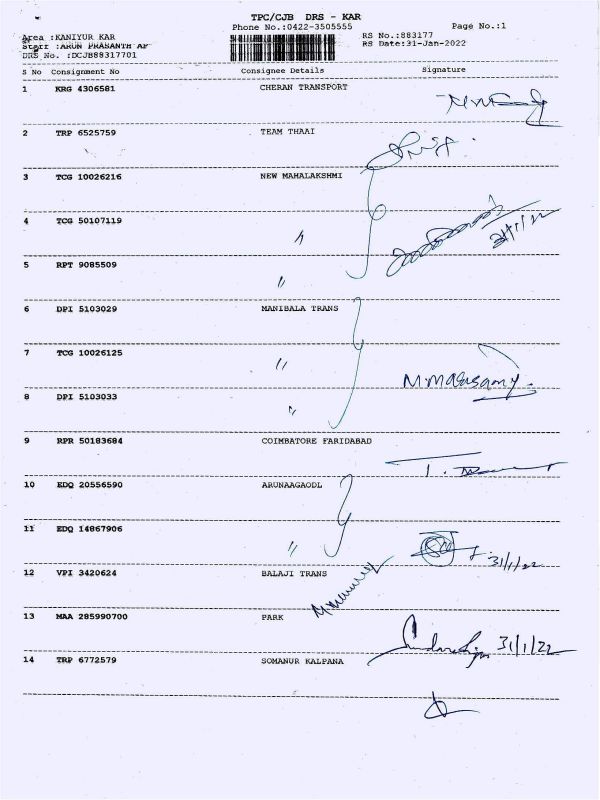 TPC/CJB DRS - KAR
Phone No.:0422-3505555 Page No.:1
Area :KANIYUR KAR RS No.:883177
Staff :ARUN PRASANTH AP RS Date:31-Jan-2022
DRS No. :DCJB88317701
S No Consignment No Consignee Details Signature
1 KRG 4306581 CHERAN TRANSPORT
2 TRP 6525759 TEAM THAAI
3 TCG 10026216 NEW MAHALAKSHMI
4 TCG 50107119 〃 31/1/22
5 RPT 9085509 〃
6 DPI 5103029 MANIBALA TRANS
7 TCG 10026125 〃
M.Masasamy
8 DPI 5103033 〃
9 RPR 50183684 COIMBATORE FARIDABAD
10 EDQ 20556590 ARUNAAGAODL
11 EDQ 14867906 〃 31/1/22
12 VPI 3420624 BALAJI TRANS
13 MAA 285990700 PARK
31/1/22
14 TRP 6772579 SOMANUR KALPANA